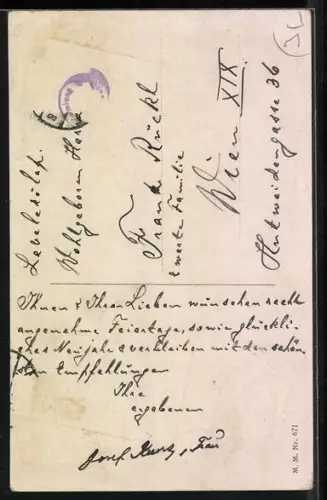 Wohlgeboren Herr
Frank Rückl
& werte Familie
Wien XIX.
Hutweidengasse 36
Ihnen & Ihren Lieben wünschen recht
angenehme Feiertage, sowie glückli-
ches Neujahr & verbleiben mit den schön-
sten Empfehlungen
Ihre
ergebenen
Josef , Frau
M. M. Nr. 671